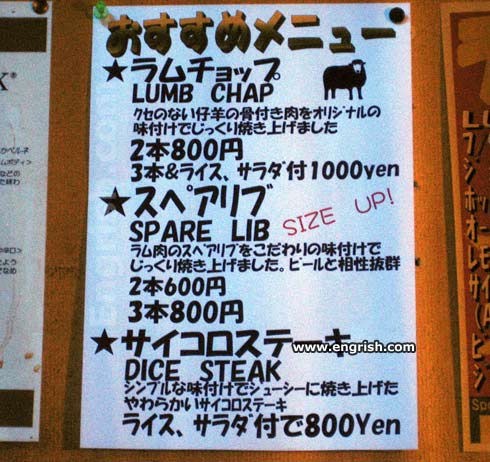 おすすめメニュー
★ラムチョップ
LUMB CHAP
クセのない仔羊の骨付き肉をオリジナルの
味付けでじっくり焼き上げました
2本800円
3本&ライス、サラダ付1000yen
★スペアリブ
SPARE LIB
SIZE UP!
ラム肉のスペアリブをこだわりの味付けで
じっくり焼き上げました。ビールと相性抜群
2本600円
3本800円
★サイコロステーキ
www.engrish.com
DICE STEAK
シンプルな味付けでジューシーに焼き上げた
やわらかいサイコロステーキ
ライス、サラダ付で800Yen